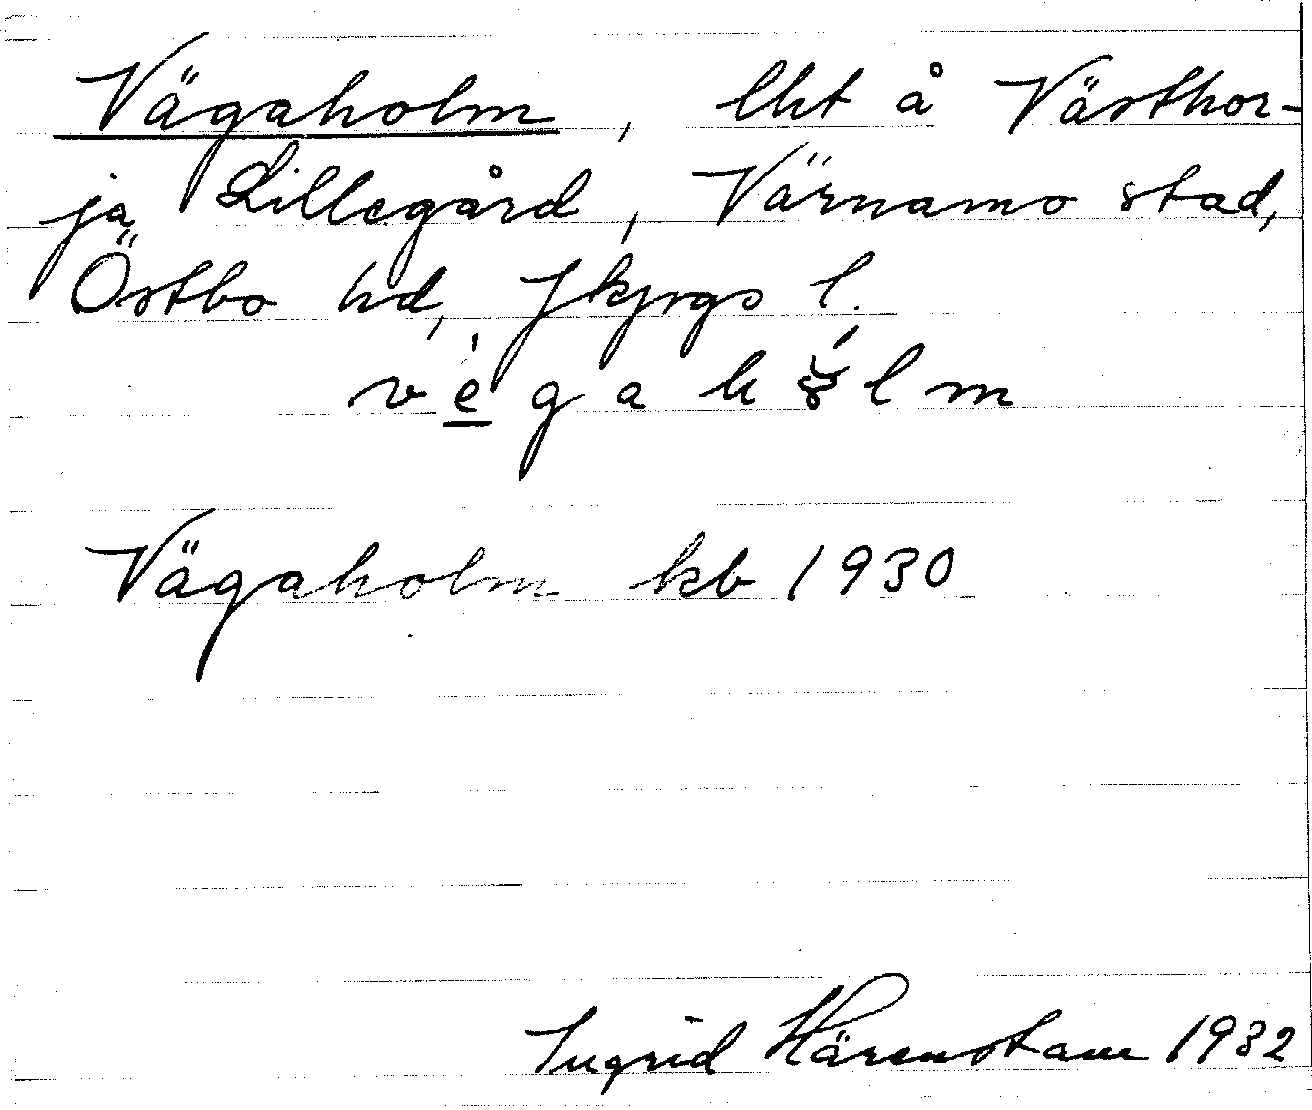 Vägaholm, lht å Västhor-
ja Lillegård, Värnamo stad,
Östbo hd, Jkpgs l.
Vägaholm kb 1930
Ingrid Härenstam 1932